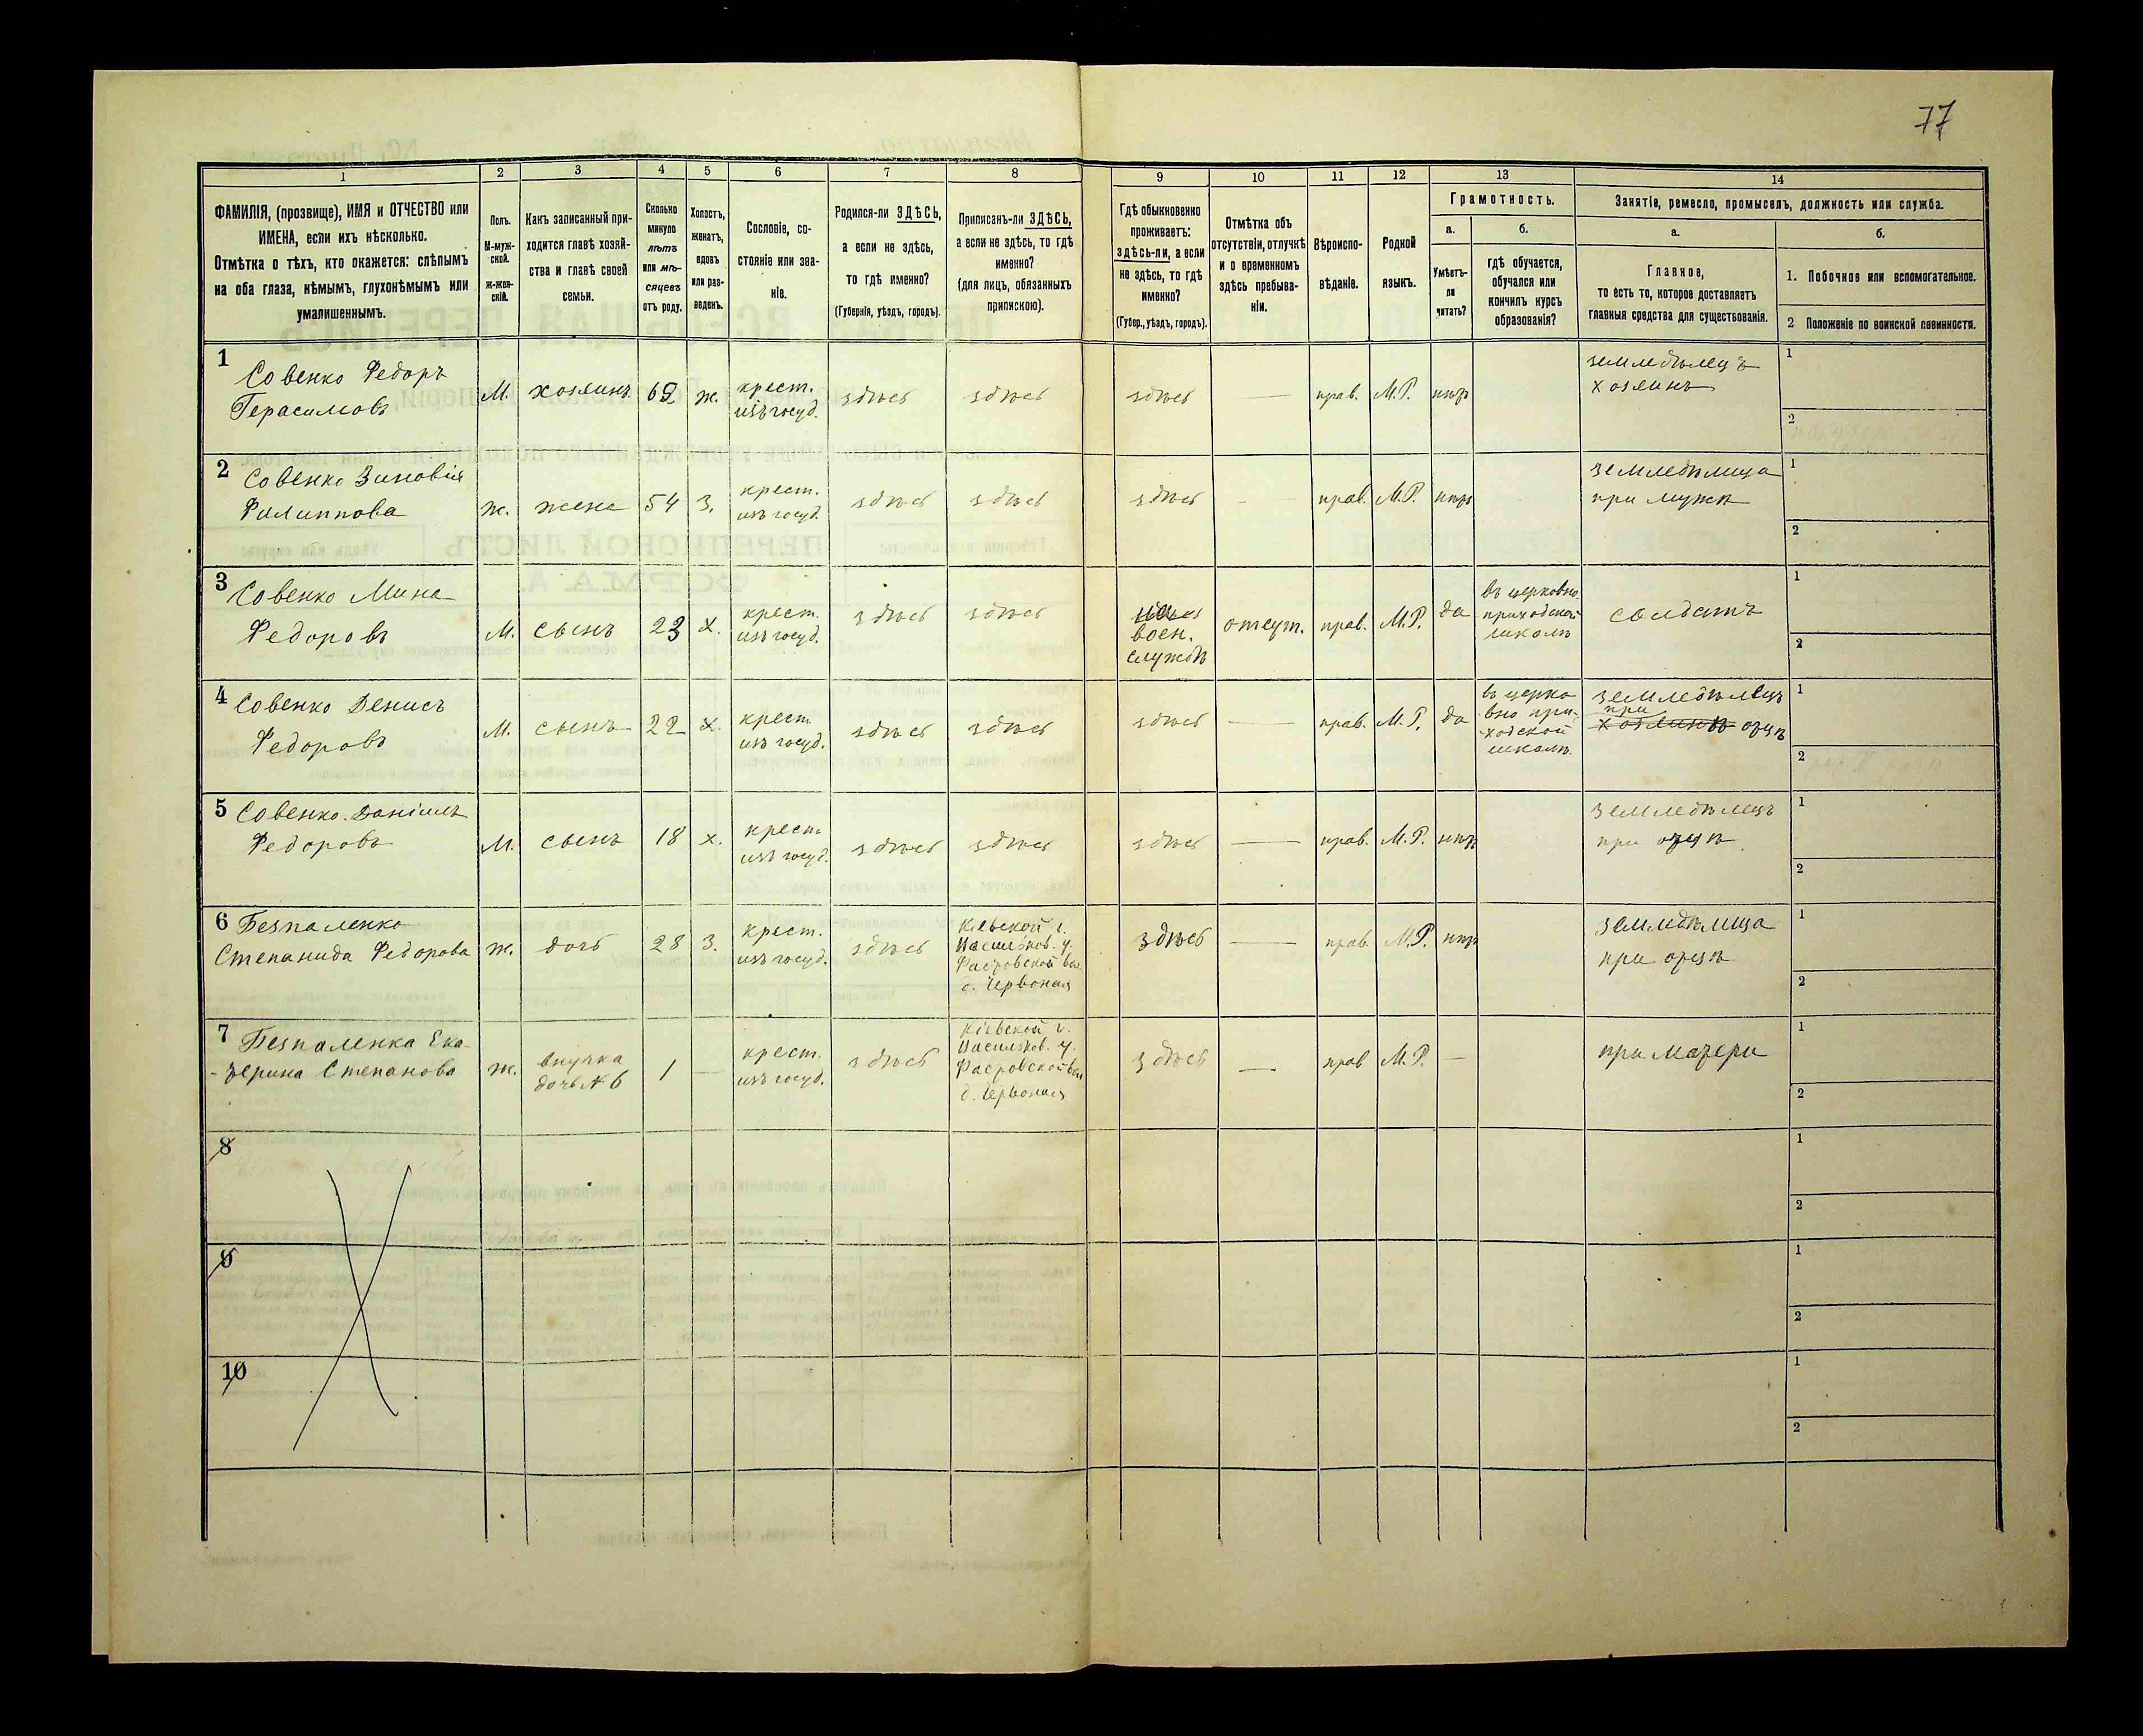 77
1 2 3 4 5 6 7 8 9 10 11 12 13 14
ФАМИЛІЯ, (прозвище), ИМЯ и ОТЧЕСТВО или
ИМЕНА, если ихъ нѣсколько.
Отмѣтка о тѣхъ, кто окажется: слѣпымъ
на оба глаза, нѣмымъ, глухонѣмымъ или
умалишеннымъ.
Полъ.
М-муж-
ской.
Ж-жен-
скій.
Какъ записанный при-
ходится главѣ хозяй-
ства и главѣ своей
семьи.
Сколько
минуло
лѣтъ
или мѣ-
сяцевъ
отъ роду.
Холостъ,
женатъ,
вдовъ
или раз-
веденъ.
Сословіе, со-
стояніе или зва-
ніе.
Родился-ли ЗДѢСЬ,
а если не здѣсь,
то гдѣ именно?
(Губернія, уѣздъ, городъ).
Приписанъ-ли ЗДѢСЬ,
а если не здѣсь, то гдѣ
именно?
(для лицъ, обязанныхъ
припискою).
Гдѣ обыкновенно
проживаетъ:
здѣсь-ли, а если
не здѣсь, то гдѣ
именно?
(Губер., уѣздъ, городъ).
Отмѣтка объ
отсутствіи, отлучкѣ
и о временномъ
здѣсь пребыва-
ніи.
Вѣроиспо-
вѣданіе.
Родной
языкъ.
Грамотность.
а.
Умѣетъ-
ли
читать?
б.
гдѣ обучается,
обучался или
кончилъ курсъ
образованія?
Занятіе, ремесло, промыселъ, должность или служба.
а.
Главное,
то есть то, которое доставляетъ
главныя средства для существованія.
б.
1. Побочное или вспомогательное.
2 Положеніе по воинской повинности.
1
Совенко Федоръ
Герасимовъ
М.
хозяинъ
62
ж.
крест.
изъ госуд.
здѣсь
здѣсь
здѣсь
—
прав.
М.Р.
нѣтъ
земледѣлецъ
хозяинъ
1
2
2
Совенко Зиновія
Филиппова
ж.
жена
54
з.
крест.
изъ госуд.
здѣсь
здѣсь
здѣсь
—
прав.
М.Р.
нѣтъ
земледѣлица
при мужѣ
1
2
3
Совенко Мина
Федоровъ
М.
сынъ
23
х.
крест.
изъ госуд.
здѣсь
здѣсь
воен.
службѣ
отсут.
прав.
М.Р.
да
въ церковно
приходской
школѣ
солдатъ
1
2
4
Совенко Денисъ
Федоровъ
М.
сынъ
22
х.
крест
изъ госуд.
здѣсь
здѣсь
здѣсь
—
прав.
М.Р.
да
въ церко
вно при-
ходской
школѣ.
земледѣлецъ
при
хозяинъ отцѣ
1
2
5
Совенко Даніилъ
Федоровъ
М.
сынъ
18
х.
крест
изъ госуд.
здѣсь
здѣсь
здѣсь
—
прав.
М.Р.
нѣтъ
земледѣлецъ
при отцѣ
1
2
6
Безпаленко
Степанида Федорова
ж.
дочь
28
з.
крест.
изъ госуд.
здѣсь
Кіевской г.
Васильков. у.
Фастовской вол
с. Червоная
здѣсь
—
прав.
М.Р.
нѣтъ
земледѣлица
при отцѣ
1
2
7
Безпаленка Ека-
-терина Степанова
ж.
внучка
дочь № 6
1
—
крест.
изъ госуд.
здѣсь
Кіевской г.
Васильков. у.
Фастовской вол
д. Червоная
здѣсь
—
прав
М.Р.
—
при матери
1
2
8
1
2
9
1
2
10
1
2